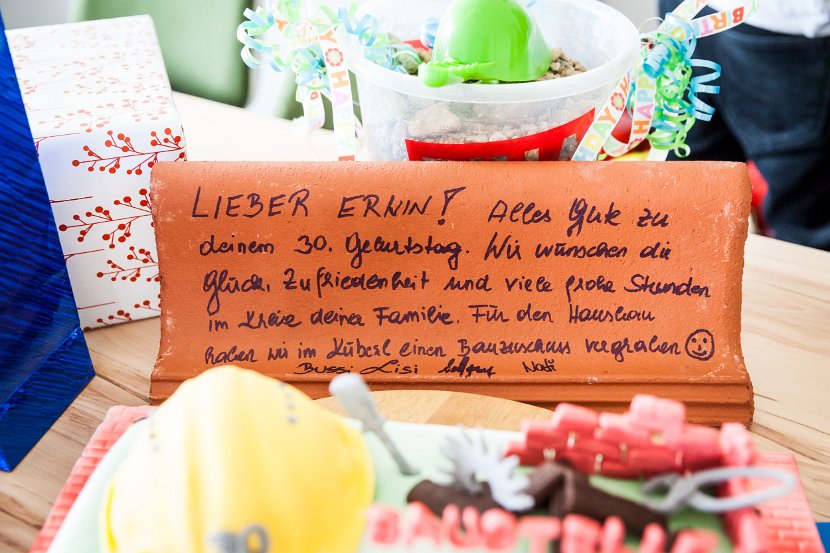 LIEBER ERWIN! Alles Gute zu
deinem 30. Geburtstag. Wir wünschen dir
Glück, Zufriedenheit und viele frohe Stunden
im Kreise deiner Familie. Für den Hausbau
haben wir im Küberl einen Bauzuschuss vergraben ☺
Bussi Lisi
30
BAUSTE